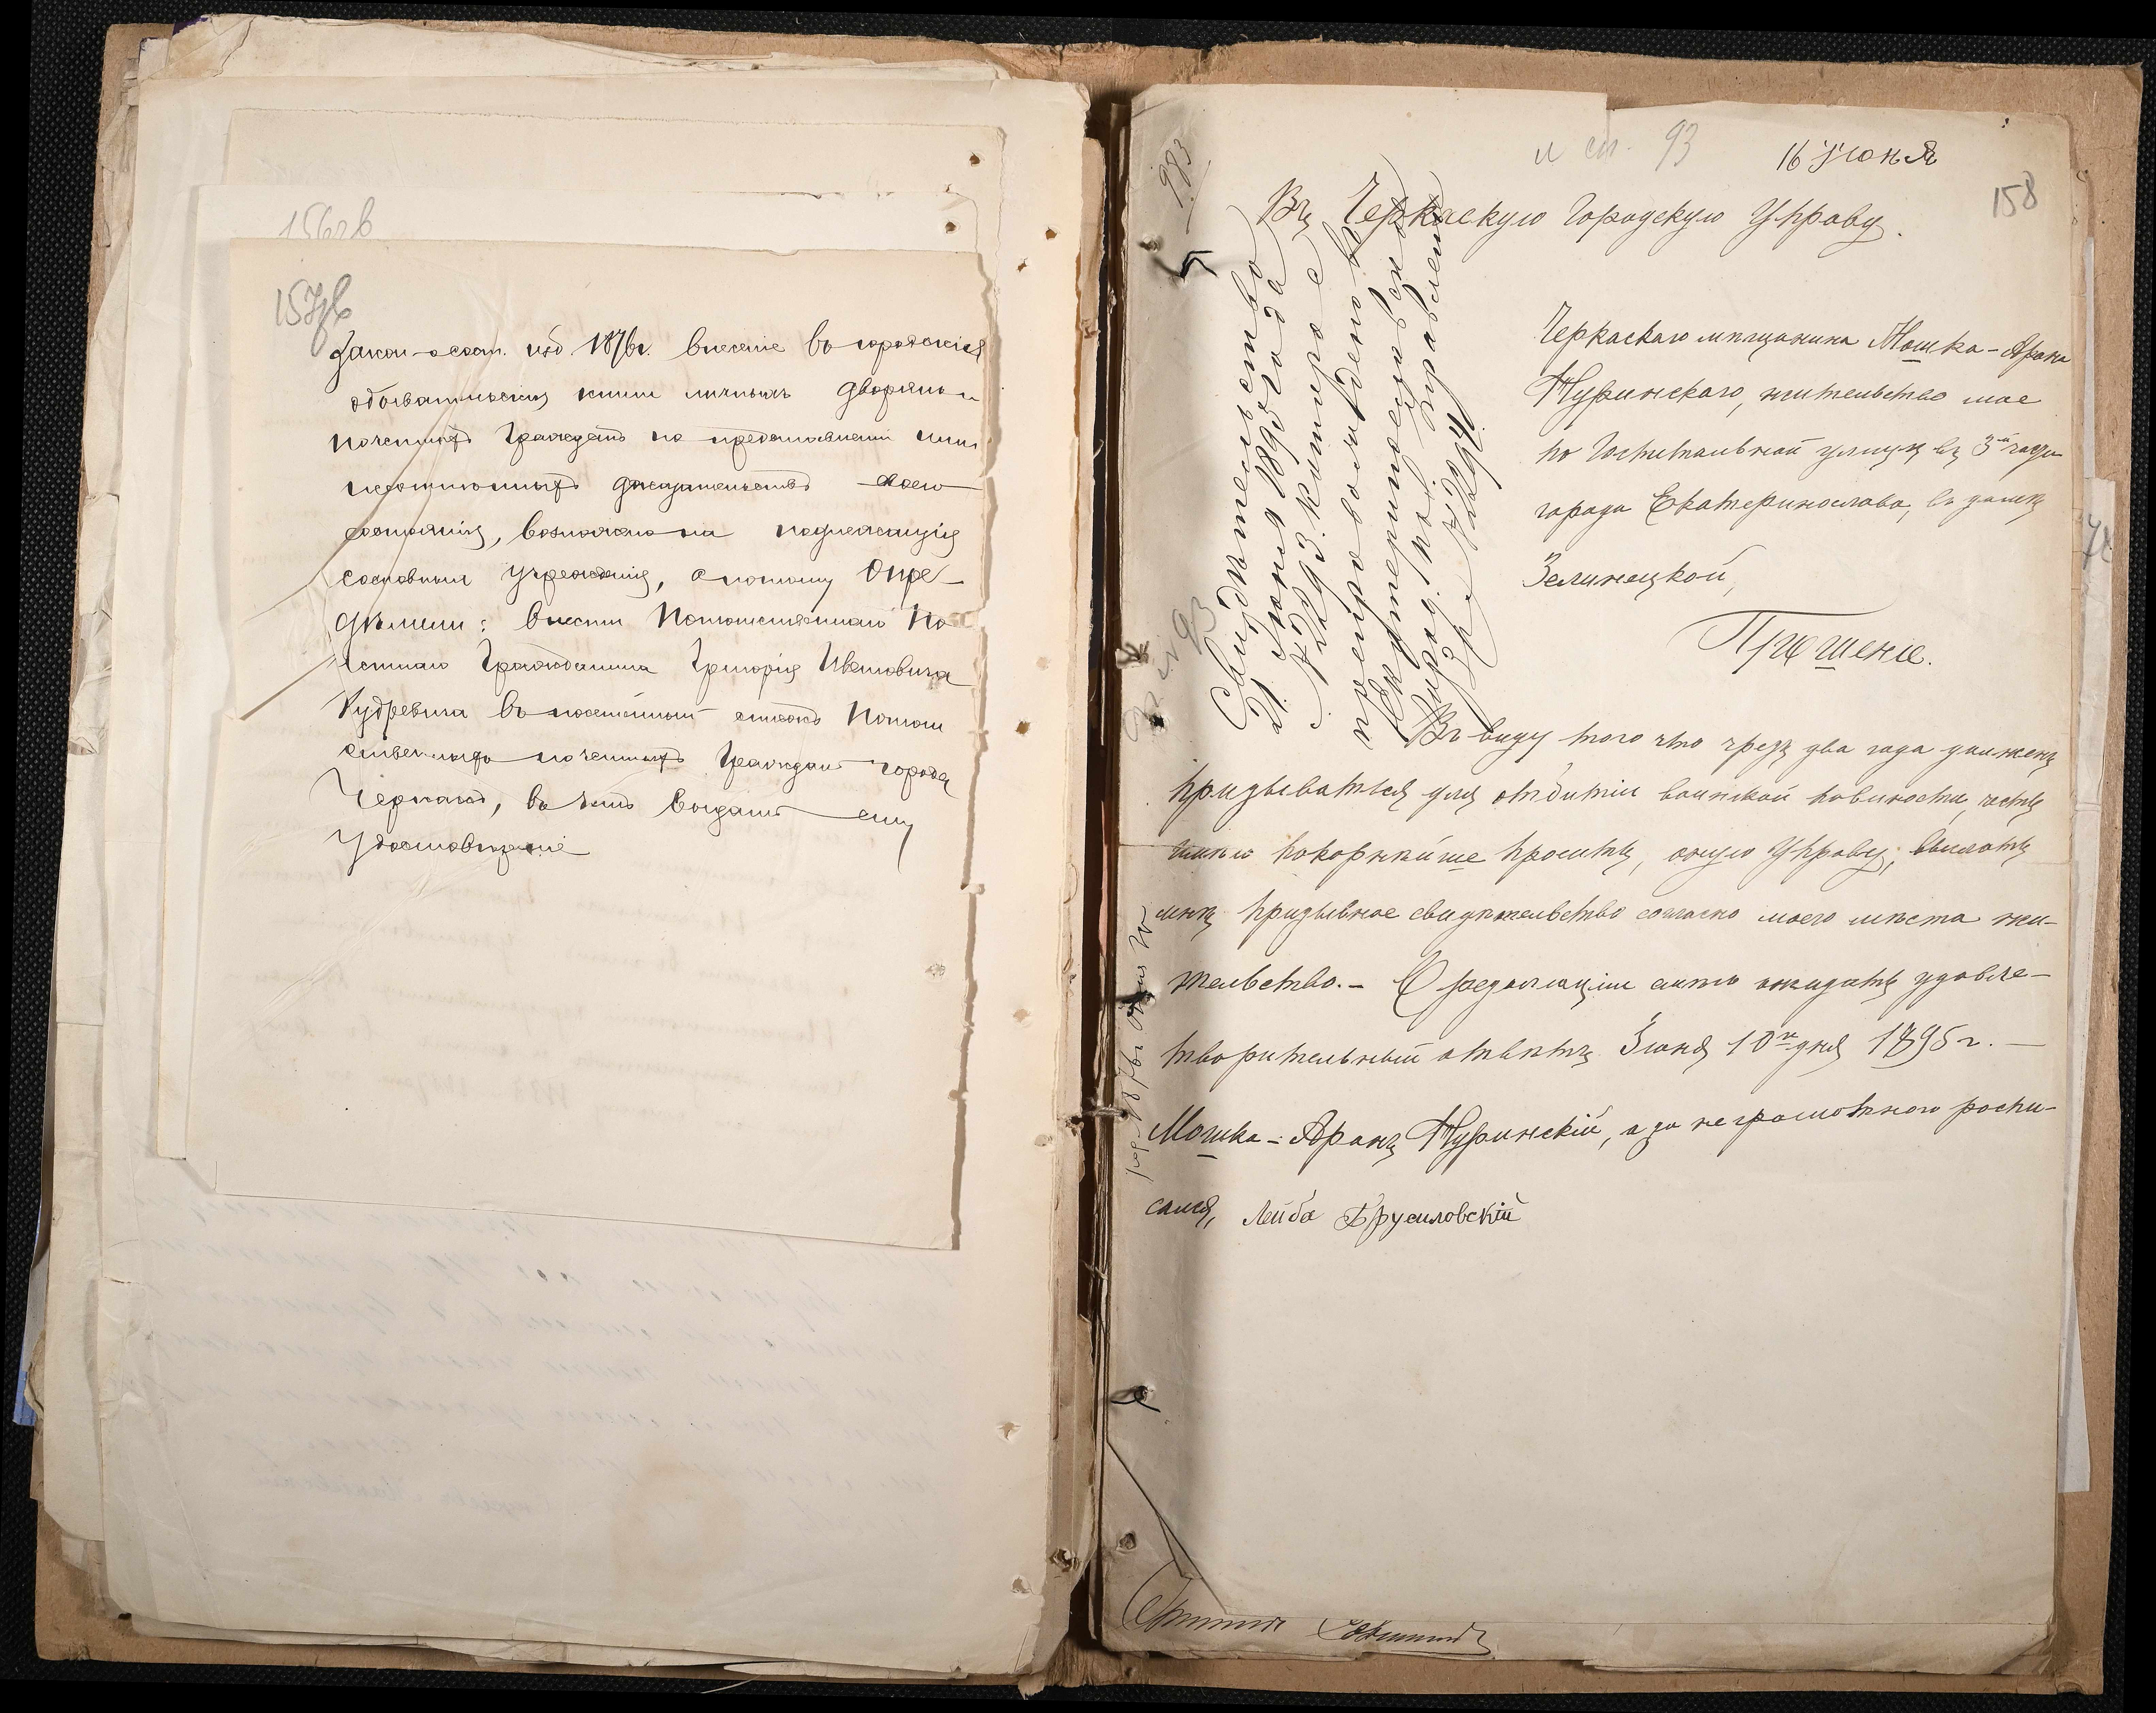 156об
157об
Закон. о сост. изд. 1876г. внесеніе въ городскія
обывательскія книги личныхъ дворянъ и
почетныхъ гражданъ по предоставленіи ими
доказательствъ своего
состоянія, возложено на подлежащія
сословныя учрежденія, а потому Опре-
дѣлили: внести Потомственнаго По-
четнаго Гражданина Григорія Ивановича
Кудревича въ посемейный списокъ Потом
ственныхъ почетныхъ гражданъ города
Черкассъ, въ чемъ выдать ему
удостовѣреніе
983
и ст. 93
16 Іюня
158
Въ Черкаскую Городскую Управу.
Свидѣтельство
21 Іюня 1895 года
Екатеринославск
Город. Пол. Управлен
Черкаскаго мѣщанина Мошка-Арона
Журинскаго, жительство мое
по Госпитальной улицѣ въ 3й части
города Екатеринослава, въ домѣ
Зелинецкой,
Прошеніе.
Въ виду того что чрезъ два года долженъ
призываться для отбитіи воинской повиности, честь
имѣю покорнѣйше просить, оную Управу, выслать
мнѣ призывное свидѣтельство согласно моего мѣста жи-
тельство. - О резолюціи имѣю ожидать удовле-
творительный отвѣтъ Іюня 10го дня 1895 г. —
Мошка-Аронъ Журинскій, а за неграмотного роспи-
сался, Лейба Брусиловскій